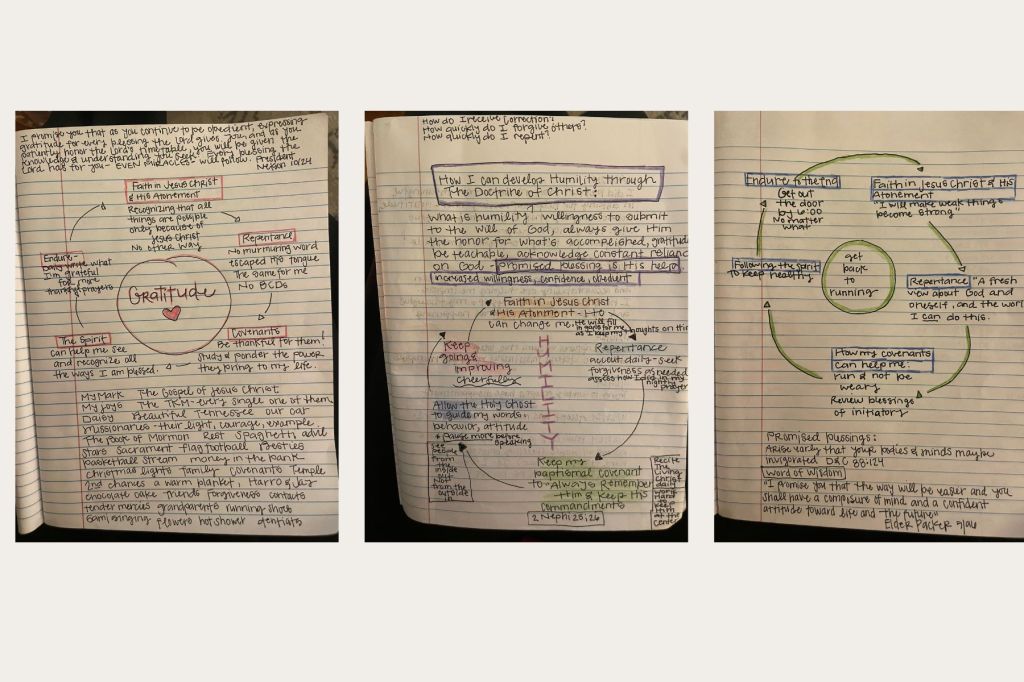 I promise you that as you continue to be obedient, expressing
gratitude for every blessing the Lord gives you, and as you
patiently honor the Lord's timetable, you will be given the
knowledge & understanding you seek. Every blessing the
Lord has for you - EVEN MIRACLES - will follow. President
Nelson 10/24
Faith in Jesus Christ
& His Atonement
Recognizing that all
things are possible
only because of
Jesus Christ
No other way
Repentance
No murmuring word
escaped his tongue
the same for me
No BCDs
Covenants
Be thankful for them!
Study & ponder the power
they bring to my life.
The Spirit
can help me see
and recognize all
the ways I am blessed.
Endure-
Daily write what
I'm grateful
for more
thankful prayers
Gratitude
My Mark The Gospel of Jesus Christ
My joys The TKM- every single one of them
Daisy Beautiful Tennessee our car
Missionaries - their light, courage, example
The Book of Mormon Rest Spaghetti advil
Stars Sacrament flag football Besties
basketball stream money in the bank
Christmas lights family Covenants Temple
2nd chances a warm blanket, Harro & Jaz
chocolate cake friends forgiveness contacts
tender mercies grandparents running shoes
Sami singing flowers hot shower dentists
How do I receive correction?
How quickly do I forgive others?
How quickly do I repent?
How I can develop Humility through
The Doctrine of Christ?
What is humility? willingness to submit
to the will of God, always give Him
the honor for what's accomplished, gratitude
be teachable, acknowledge constant reliance
on God - promised blessing is His help,
increased willingness, confidence, obedient
Faith in Jesus Christ
& His Atonment - He
can change me. He will fill
in gaps for me
as I keep my thoughts on Him
Repentance
account daily - seek
forgiveness as needed
assess how I did in my
nightly
prayer
Keep my
baptismal covenant
to "Always Remember
Him & Keep His
commandments
2 Nephi 25:26
Recite
The
Living
Christ
daily
words
keep
Him
at the
center
Allow the Holy Ghost
to guide my words
behavior, attitude
& pause more before
speaking
become
From
the
inside
out
Not
from the
outside
in
Keep
going,
improving
cheerfully
HUMILITY
Endure to the End
Get out
the door
by 6:00
No matter
what
Faith in Jesus Christ & His
Atonement
"I will make weak things
become strong"
Repentance "A fresh
view about God and
oneself, and the world
I can do this.
How my covenants
can help me:
run & not be
weary
Review blessings
of initiatory
Following the Spirit
to keep healthy
get
back
to
running
Promised blessings:
Arise early that your bodies & minds maybe
invigorated D&C 88:124
Word of Wisdom
"I promise you that the way will be easier and you
shall have a composure of mind and a confident
attitude toward life and the future"
Elder Packer 5/96